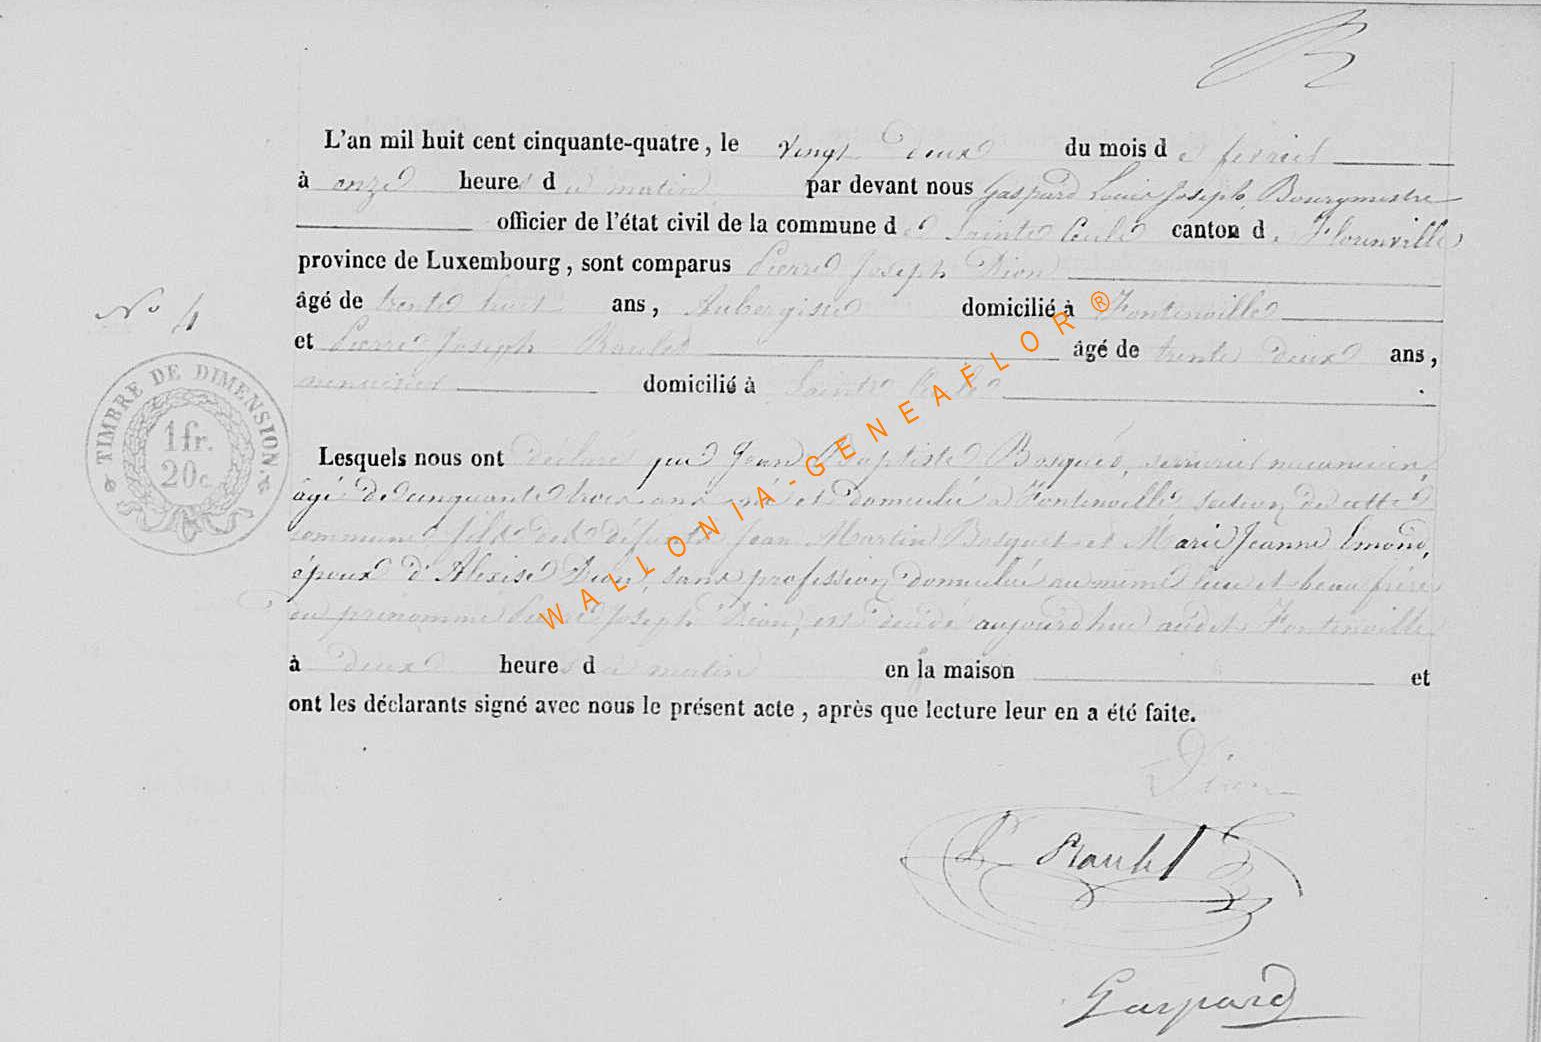 L'an mil huit cent cinquante-quatre, le vingt deux du mois de fevrier
à onze heures du matin par devant nous Gaspard Louis Joseph, Bourgmestre
officier de l'état civil de la commune de Sainte Cecile canton d. Florenville
province de Luxembourg, sont comparus Pierre Joseph Dion
âgé de trente huit ans, Aubergiste domicilié à Fontenoille
et Pierre Joseph Raulet âgé de trente deux ans,
menuisier domicilié à Sainte Cecile.
No 4
TIMBRE DE DIMENSION.
1 fr.
20 c.
Lesquels nous ont déclaré que Jean Baptiste Bosquée, serrurier mecanicien,
âgé de cinquante trois ans né et domicilié à Fontenoille, section de cette
commune, fils des défunts Jean Martin Bosquet et Marie Jeanne Emond,
époux d'Alexise Dion, sans profession, domicilié au même lieu et beau frère
du prénommé Pierre Joseph Dion, est décédé aujourd'hui audit Fontenoille
à deux heures du matin en sa maison et
ont les déclarants signé avec nous le présent acte, après que lecture leur en a été faite.
Dion
Raulet
Gaspard
WALLONIA-GENEAFLOR®